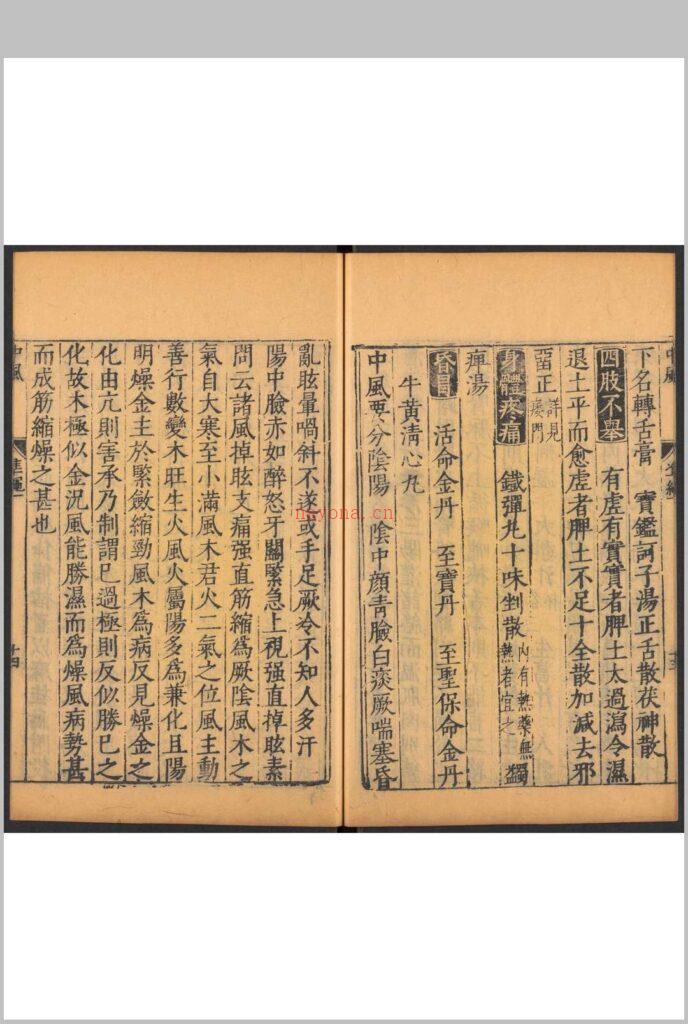 下名轉舌膏 寶鑑訶子湯正舌散茯神散
四肢不舉 有虛有實實者脾土太過瀉令濕
退土平而愈虛者脾土不足十全散加減去邪
留正詳見痿門
身體疼痛 鐵彈丸十味剉散內有熱藥無熱者宜之 獨
痺湯
昏冒 活命金丹 至寶丹 至聖保命金丹
牛黃清心丸
中風要分陰陽 陰中顔青臉白痰厥喘塞昏
亂眩暈喎斜不遂或手足厥冷不知人多汗
陽中臉赤如醉怒牙關緊急上視强直掉眩素
問云諸風掉眩支痛强直筋縮爲厥陰風木之
氣自大寒至小滿風木君火二氣之位風主動
善行數變木旺生火風火屬陽多爲兼化且陽
明燥金主於緊斂縮勁風木爲病反見燥金之
化由亢則害承乃制謂已過極則反似勝已之
化故木極似金況風能勝濕而爲燥風病勢甚
而成筋縮燥之甚也
中風
十四
nayona.cn